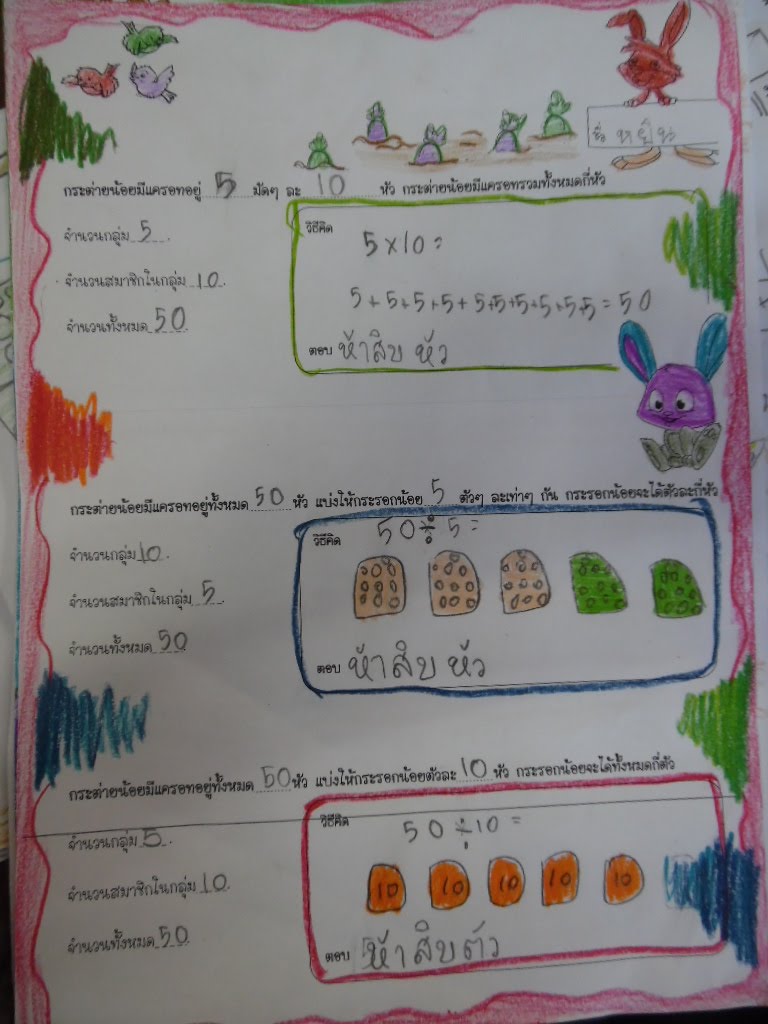 ชื่อ หยิน
กระต่ายน้อยมีแครอทอยู่ 5 มัดๆ ละ 10 หัว กระต่ายน้อยมีแครอทรวมทั้งหมดกี่หัว
จำนวนกลุ่ม 5
จำนวนสมาชิกในกลุ่ม 10
จำนวนทั้งหมด 50
วิธีคิด
5×10=
5+5+5+5+5+5+5+5+5+5=50
ตอบ ห้าสิบ หัว
กระต่ายน้อยมีแครอทอยู่ทั้งหมด 50 หัว แบ่งให้กระรอกน้อย 5 ตัวๆ ละเท่าๆ กัน กระรอกน้อยจะได้ตัวละกี่หัว
จำนวนกลุ่ม 10
จำนวนสมาชิกในกลุ่ม 5
จำนวนทั้งหมด 50
วิธีคิด 50÷5=
ตอบ ห้าสิบ หัว
กระต่ายน้อยมีแครอทอยู่ทั้งหมด 50 หัว แบ่งให้กระรอกน้อยตัวละ 10 หัว กระรอกน้อยจะได้ทั้งหมดกี่ตัว
จำนวนกลุ่ม 5
จำนวนสมาชิกในกลุ่ม 10
จำนวนทั้งหมด 50
วิธีคิด 50÷10=
10 10 10 10 10
ตอบ ห้าสิบตัว